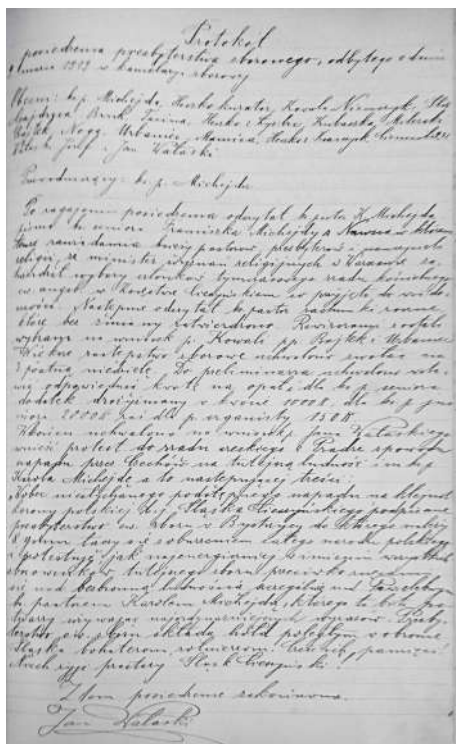 Protokol
posiedzenia presbyterstwa zborowego, odbytego w dniu
9 marca 1919 w kancelaryi zborowej
Obecni: ks. p. Michejda, Heczko kurator, Kowala Niemczyk,
Bystrz, Kubaczka,
Rajtek, Nogg, Urbaniec, Mamica, Heczko Krawczyk
Józef i Jan Walaski
Przewodniczący: ks. p. Michejda.
Po zagajeniu posiedzenia odczytał ks. pastor K. Michejda
pismo ks. seniora Franciszka Michejdy z Nawsia w którem
tenże zawiadamia pastorów, presbyterów i
religii, że minister wyznań religijnych w Warszawie
wybory członków tymczasowego rządu kościelnego
ew. augsb. w Księstwie Cieszyńskiem co przyjęto do wiado-
mości. Następnie odczytał ks. pastor rachunki roczne,
które bez zmiany zatwierdzono. Rewizorami zostali
wybrani na wniosek p. Kowali pp. Rajtek i Urbaniec
Większe zastępstwo zborowe uchwalono zwołać na
3 postną niedzielę. Do preliminarza uchwalono wsta-
wić odpowiednią kwotę na opał dla ks. p. seniora
dodatek drożyźniany w kwocie 1000 K. dla ks. p.
2000 K zaś dla p. organisty 150 K
W końcu uchwalono na wniosek p. Jana Walaskiego
wnieść protest do rządu czeskiego w Pradze z powodu
napadu przez Czechów na tutejszą ludność i na ks. p.
Karola Michejdę a to następującej treści:
Wobec niesłychanego podstępnego napadu na klejnot
korony polskiej tj. Śląska Cieszyńskiego podpisane
presbyterstwo ew. zboru w Bystrzycy do którego należy
8 gmin łączy się z oburzeniem całego narodu polskiego
i protestuje jak najenergiczniej w imieniu wszystkich
członków tutejszego zboru przeciwko
się nad bezbronną ludnością a szczególnie nad
ks. pastorem Karolem Michejdą, którego to
używając wyrazów. Presby-
terstwo ew. zboru składa hołd poległym w obronie
Śląska bohaterom żołnierzom! Cześć ich pamięci!
Niech żyje prastary Śląsk Cieszyński!
Z tem posiedzenie zakończono.
Jan Walaski